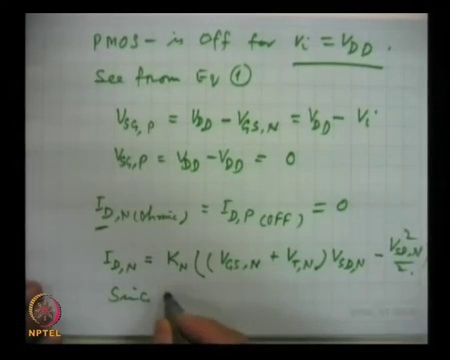 PMOS - is Off for Vi = VDD.
See from Eq ①
VSG,P = VDD - VGS,N = VDD - Vi
VSG,P = VDD - VDD = 0
ID,N(Ohmic) = ID,P(OFF) = 0
ID,N = KN((VGS,N + VT,N)VSD,N - VSD,N²/2.
Sinc
NPTEL